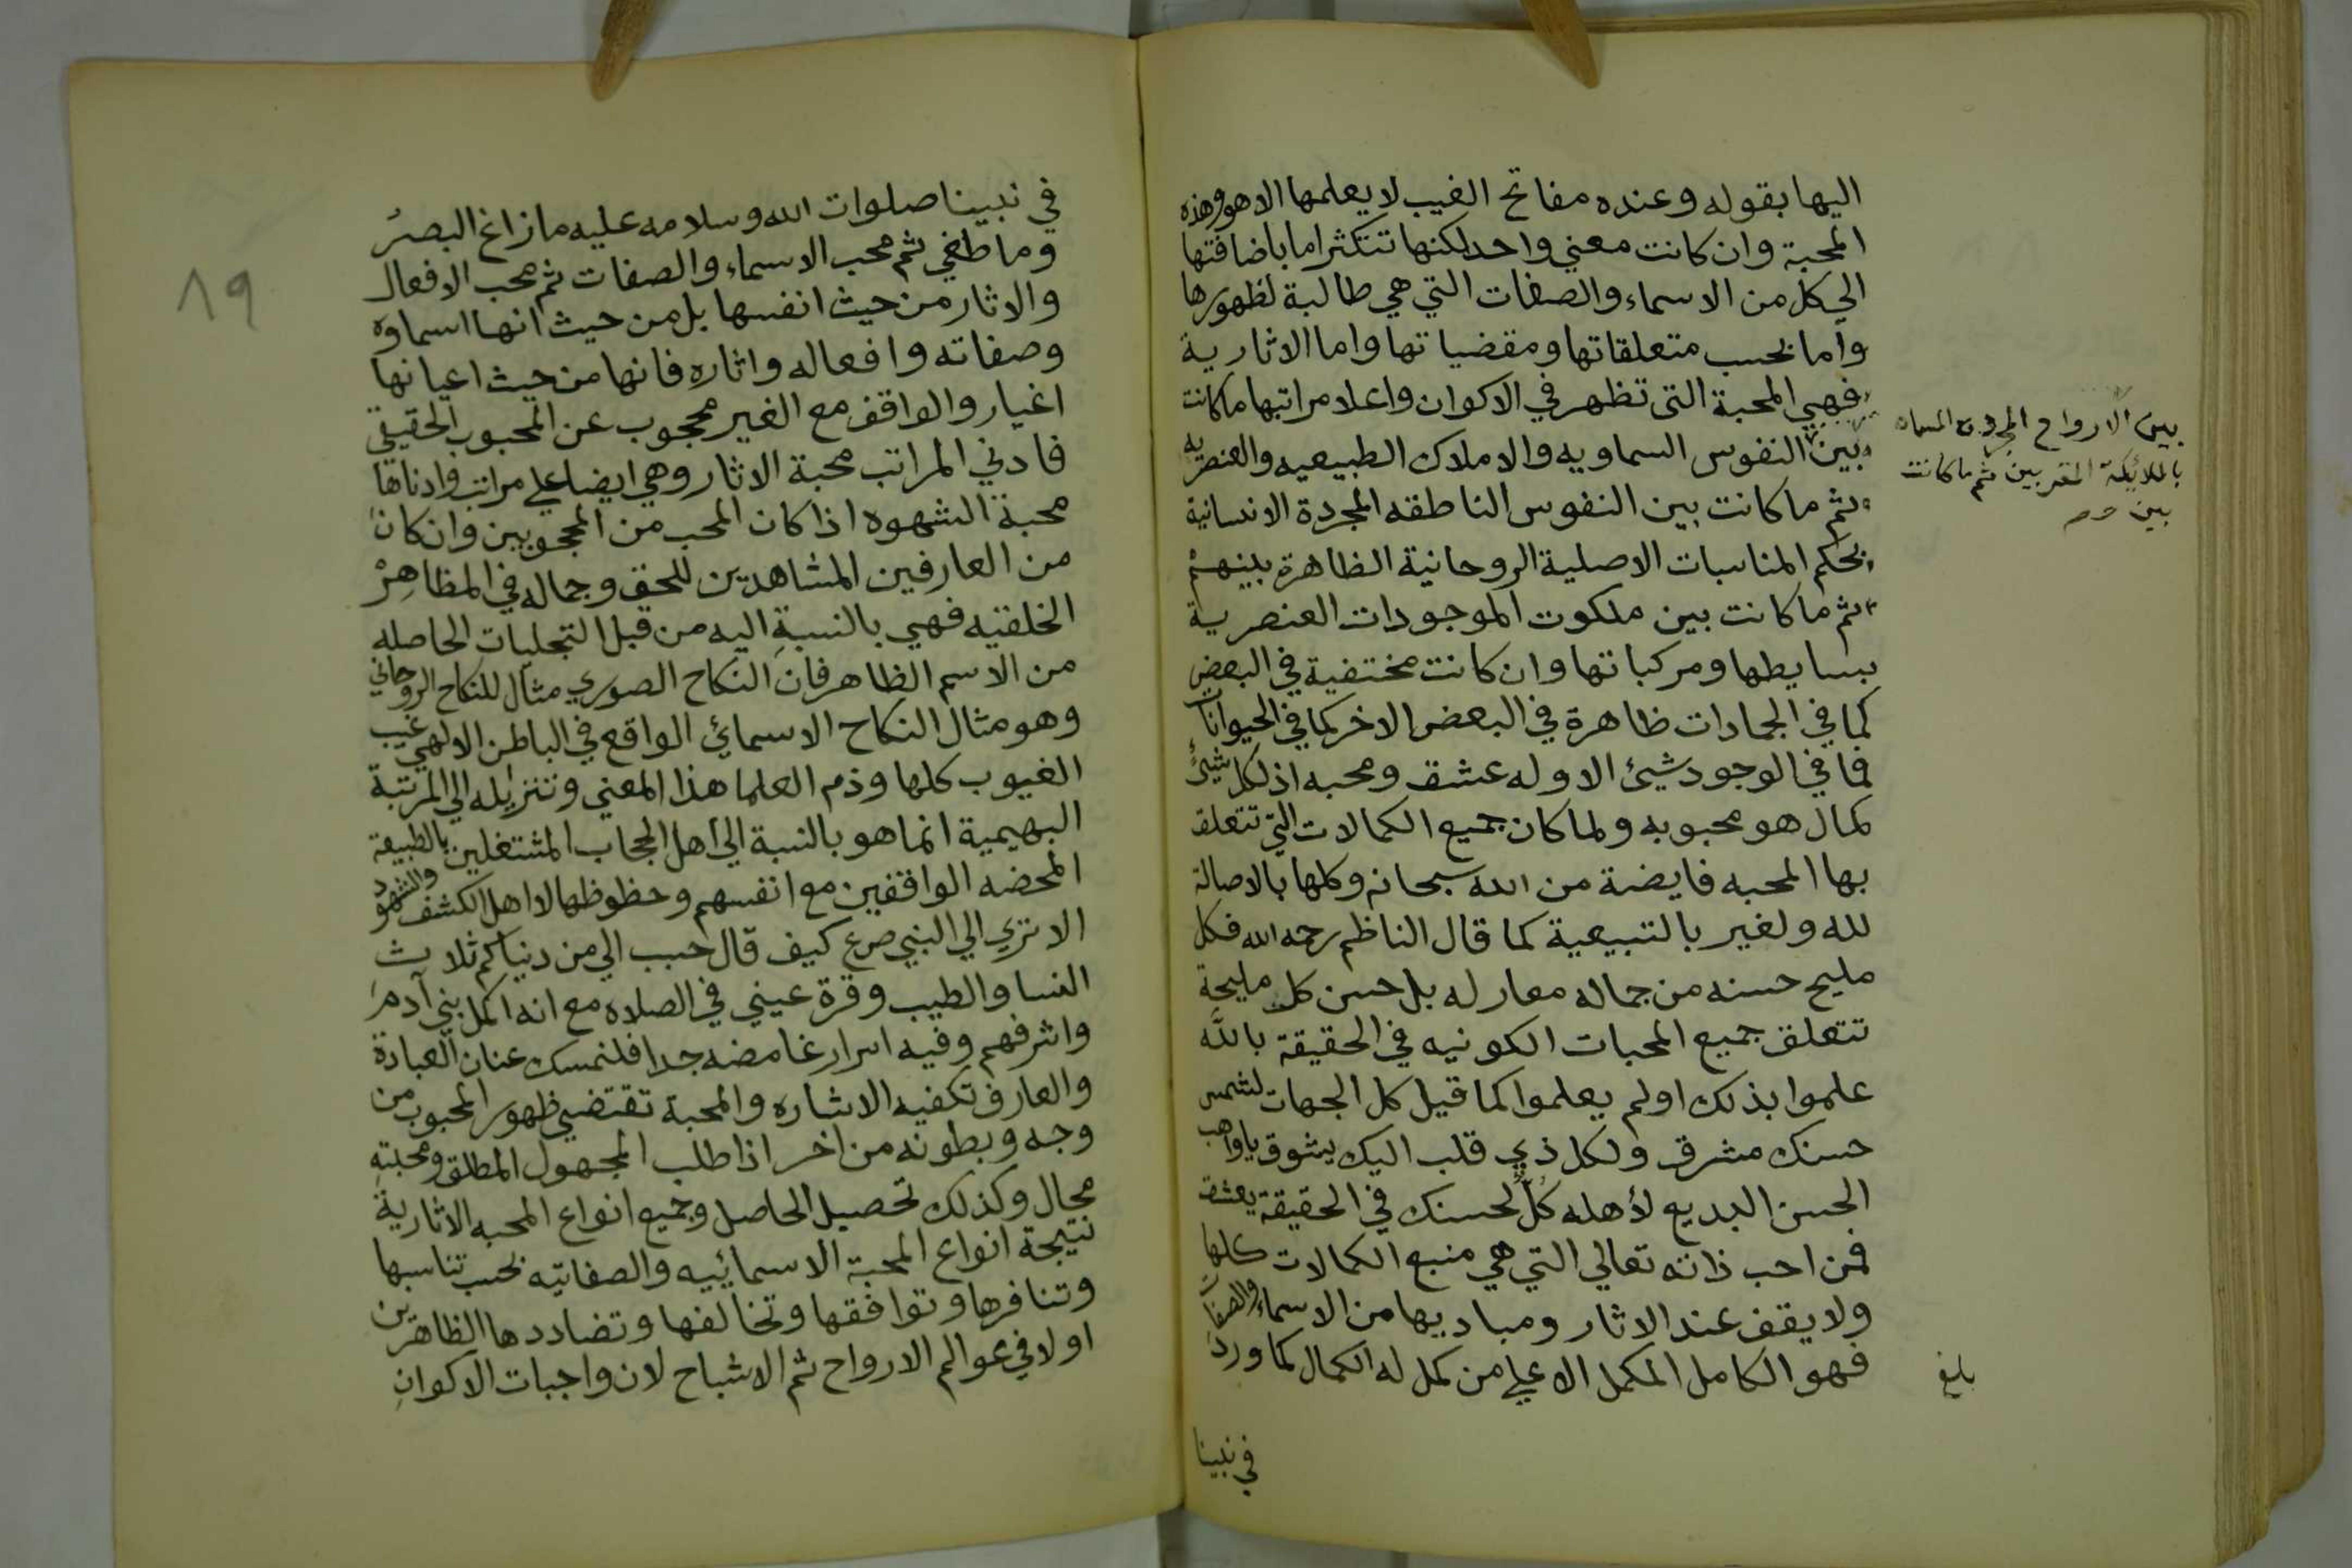 اليها بقوله وعنده مفاتح الغيب لا يعلمها الا هو وهذه
المحبة وان كانت معني واحد لكنها تتكثر اما باضافتها
الي كل من الاسماء والصفات التي هي طالبة لظهورها
واما بحسب متعلقاتها ومقضياتها واما الاثارية
فهي المحبة التي تظهر في الاكوان واعلا مراتبها ما كانت
بين النفوس السماويه والاملاك الطبيعيه والعنصريه
ثم ما كانت بين النفوس الناطقه المجردة الانسانية
بحكم المناسبات الاصلية الروحانية الظاهرة بينهم
ثم ما كانت بين ملكوت الموجودات العنصرية
بسايطها ومركباتها وان كانت مختفية في البعض
كما في الجمادات ظاهرة في البعض الاخر كما في الحيوانات
فما في الوجود شيئ الا وله عشق ومحبه اذ لكل شيئ
كمال هو محبوبه ولما كان جميع الكمالات التي تتعلق
بها المحبه فايضة من الله سبحانه وكلها بالاصالة
لله ولغير بالتبيعية كما قال الناظم رحمه الله فكل
مليح حسنه من جماله معار له بل حسن كل مليحة
تتعلق جميع المحبات الكونيه في الحقيقة بالله
علموا بذلك اولم يعلموا كما قيل كل الجهات لشمس
حسنك مشرق ولكل ذي قلب اليك يشوق يا واهب
الحسن البديع لأهله كلٌّ لحسنك في الحقيقة يعشق
فمن احب ذاته تعالي التي هي منبع الكمالات كلها
ولا يقف عند الاثار ومباديها من الاسماء والصفات
فهو الكامل المكمل الاعلي من كمل له الكمال كما ورد
في نبينا
بين الارواح المجردة المسماه
بالملائكة المقربين ثم ما كانت
بين
بلغ
١٩
في نبينا صلوات الله وسلامه عليه ما زاغ البصر
وما طغي ثم محب الاسماء والصفات ثم محب الافعال
والاثار من حيث انفسها بل من حيث انها اسماوه
وصفاته وافعاله واثاره فانها من حيث اعيانها
اغيار والواقف مع الغير محجوب عن المحبوب الحقيقي
فادني المراتب محبة الاثار وهي ايضا علي مراتب وادناها
محبة الشهوه اذا كان المحب من المحجوبين وان كان
من العارفين المشاهدين للحق وجماله في المظاهر
الخلقيه فهي بالنسبة اليه من قبل التجليات الحاصله
من الاسم الظاهر فان النكاح الصوري مثال للنكاح الروحاني
وهو مثال النكاح الاسمائي الواقع في الباطن الالهي غيب
الغيوب كلها وذم العلما هذا المعني وتنزيله الي المرتبة
البهيمية انما هو بالنسبة الي اهل الحجاب المشتغلين بالطبيعة
المحضه الواقفين مع انفسهم وحظوظها لا اهل الكشف والشهود
الا تري الي النبي صرع كيف قال حبب الي من دنياكم ثلاث
النسا والطيب وقرة عيني في الصلاه مع انه اكمل بني آدم
واشرفهم وفيه اسرار غامضه جدا فلنمسك عنان العبادة
والعارف تكفيه الاشاره والمحبة تقتضي ظهور المحبوب من
وجه وبطونه من اخر اذا طلب المجهول المطلق ومحبته
محال وكذلك تحصيل الحاصل وجميع انواع المحبه الاثارية
نتيجة انواع المحبة الاسمائيه والصفاتيه بحسب تناسبها
وتنافرها وتوافقها وتخالفها وتضاددها الظاهرين
اولا في عوالم الارواح ثم الاشباح لان واجبات الاكوان